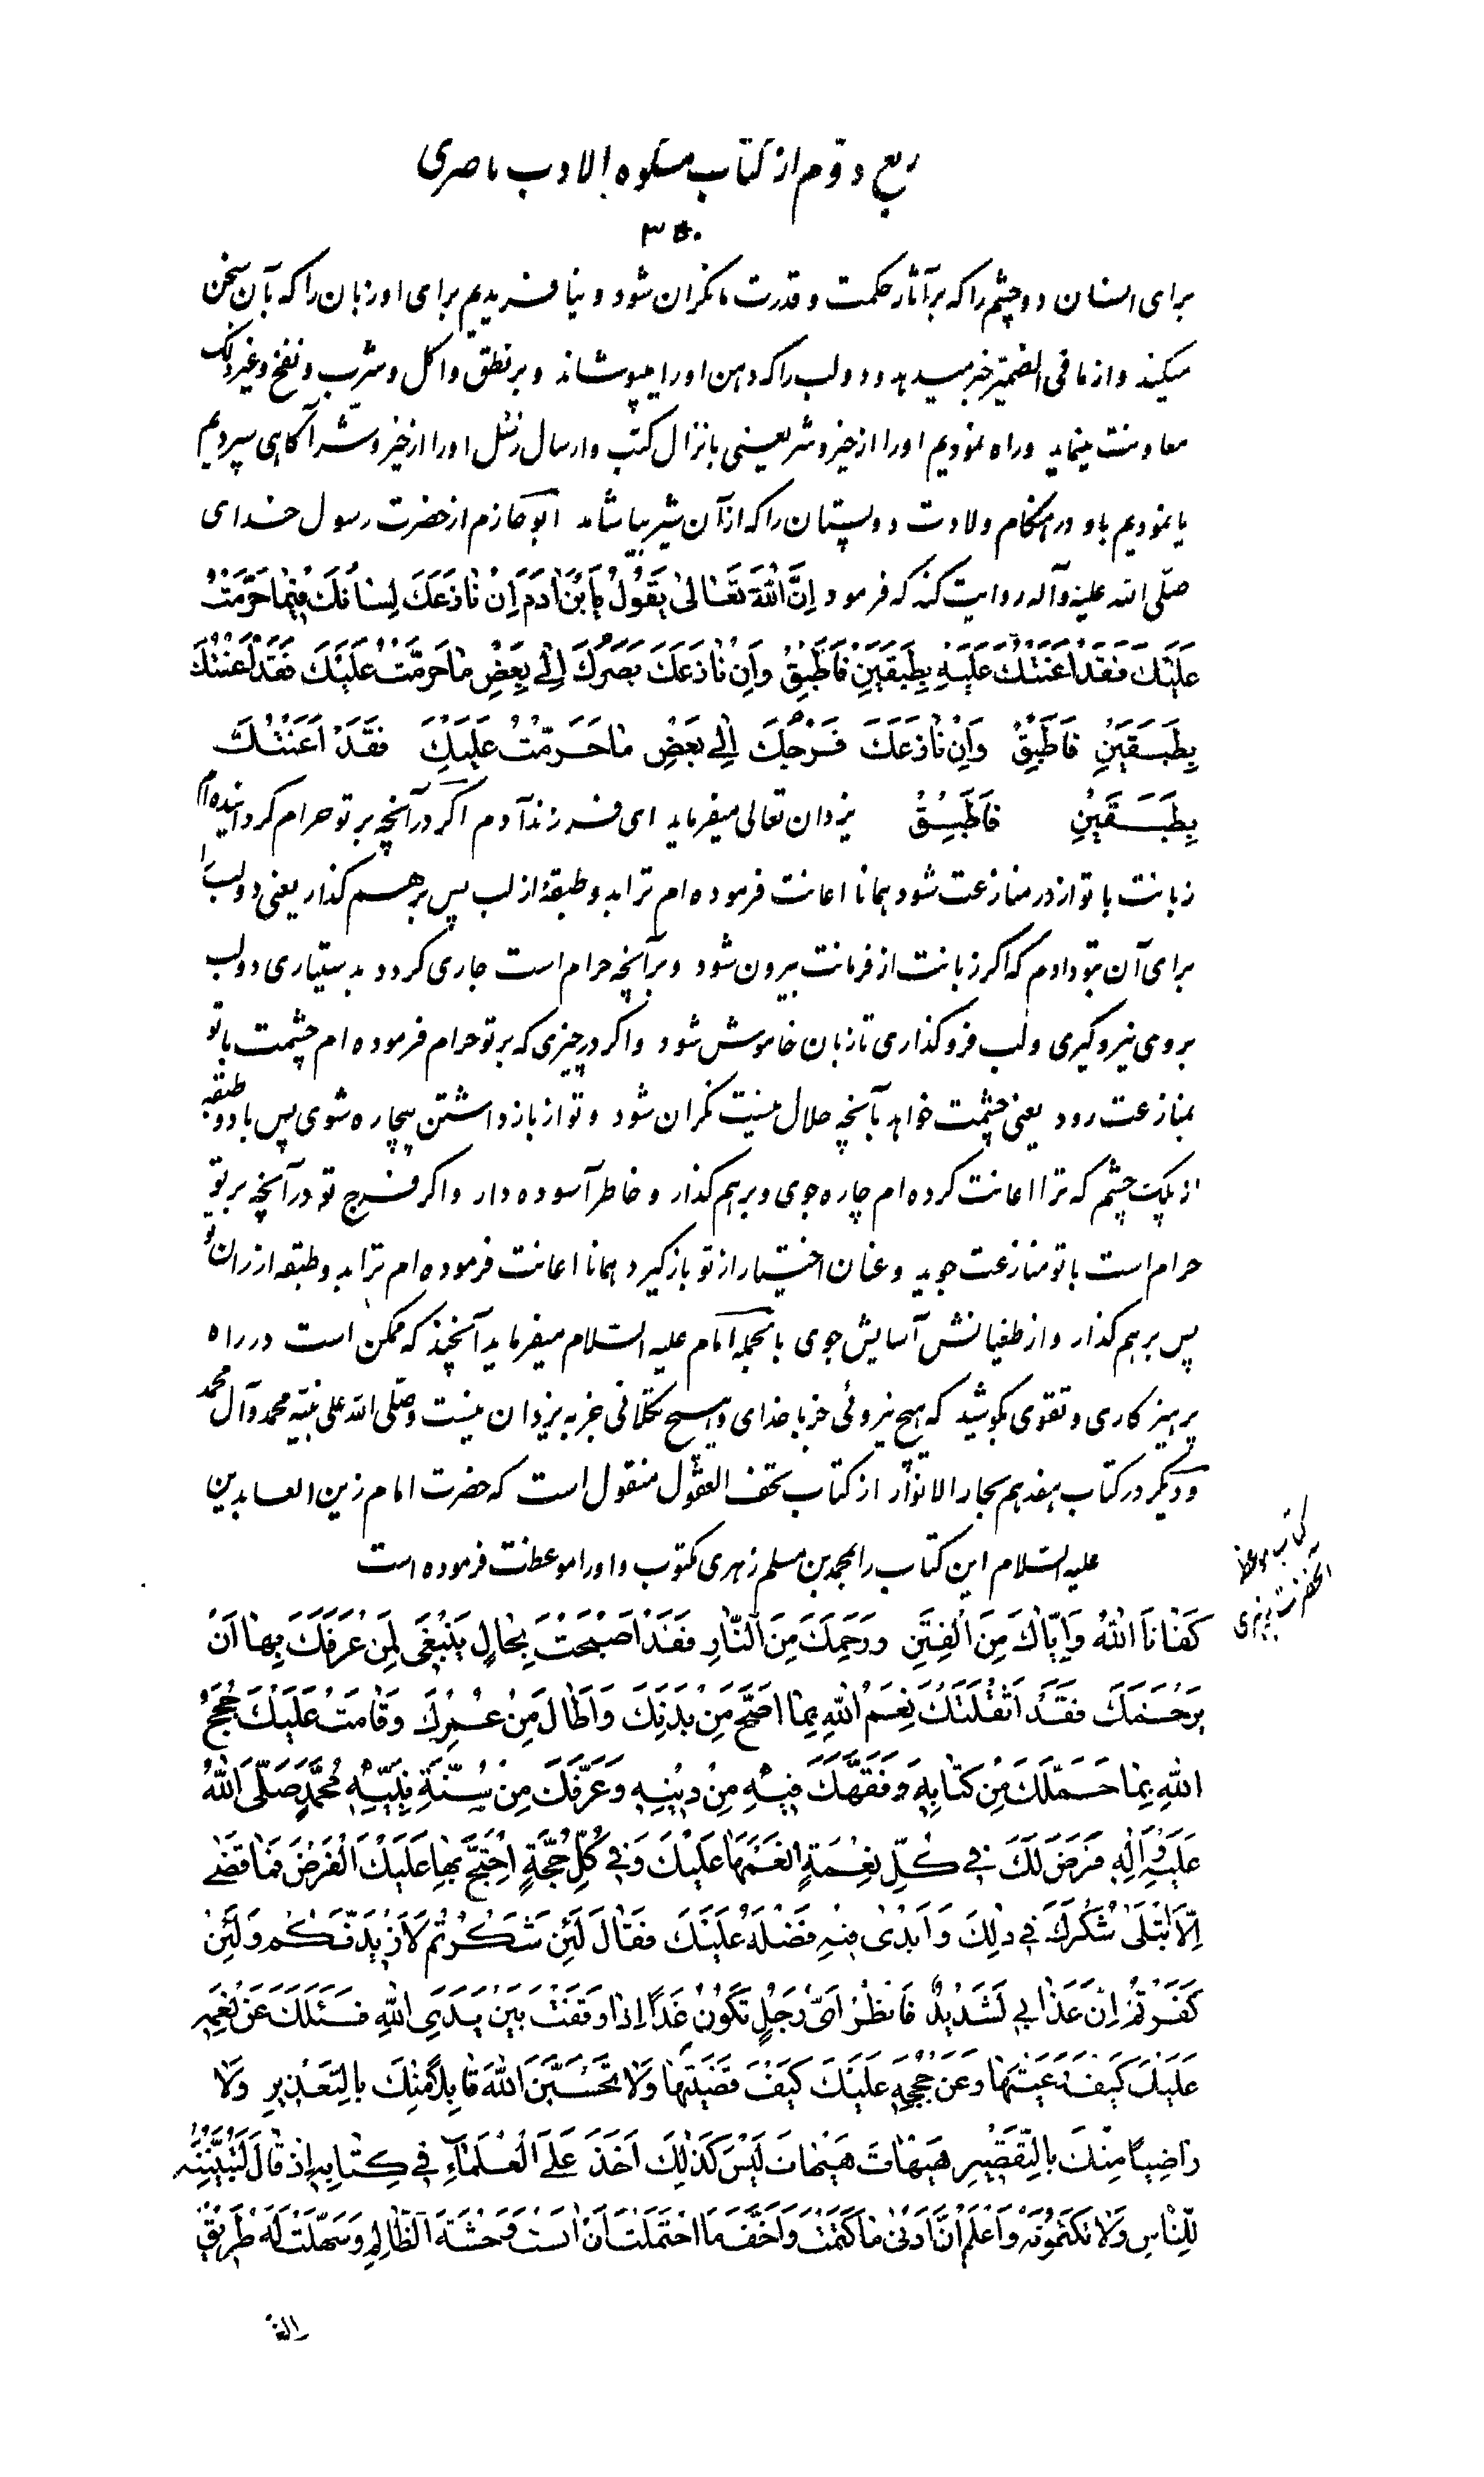 ربع دوّم از کتاب مشکوه الادب ناصری
۳۵۰
برای انسان دو چشم را که بر آثار حکمت و قدرت ما نگران شود و نیافریدیم برای او زبان را که بآن سخن
میکند و از ما فی الضمیر خبر میدهد و دو لب را که دهن او را میپوشاند و بر نطق و اکل و شرب و نفخ و غیر ذلک
معاونت مینماید وراه نمودیم او را از خیر و شر یعنی بانزال کتب و ارسال رسل او را از خیر و شر آگاهی سپردیم
یا نمودیم باو در هنگام ولادت دو پستان را که از آن شیر بیاشامد ابو حازم از حضرت رسول خدای
صلّی الله علیه وآله روایت کند که فرمود اِنَّ اللّٰهَ تَعَالىٰ یَقُولُ یَابْنَ اٰدَمَ اِنْ نٰازَعَكَ لِسٰانُكَ فِیمٰا حَرَّمْتُ
عَلَیْكَ فَقَدْ اَعَنْتُكَ عَلَیْهِ بِطَبَقَیْنِ فَاَطْبِقْ وَاِنْ نٰازَعَكَ بَصَرُكَ اِلىٰ بَعْضِ مٰا حَرَّمْتُ عَلَیْكَ فَقَدْ اَعَنْتُكَ
بِطَبَقَیْنِ فَاَطْبِقْ وَاِنْ نٰازَعَكَ فَرْجُكَ اِلىٰ بَعْضِ مٰا حَرَّمْتُ عَلَیْكَ فَقَدْ اَعَنْتُكَ
بِطَبَقَیْنِ فَاَطْبِقْ یزدان تعالی میفرماید ای فرزند آدم اگر در آنچه بر تو حرام گردانیده‌ام
زبانت با تو از در منازعت شود همانا اعانت فرموده ام ترا بدو طبقهٔ از لب پس بر هم گذار یعنی دو لب را
برای آن بتو دادم که اگر زبانت از فرمانت بیرون شود و بر آنچه حرام است جاری گردد بدستیاری دو لب
بروی نیرو گیری و لب فرو گذاری تا زبان خاموش شود و اگر در چیزی که بر تو حرام فرموده ام چشمت با تو
بمنازعت رود یعنی چشمت خواهد بآنچه حلال نیست نگران شود و تو از باز داشتن بیچاره شوی پس با دو طبقه
از پلک چشم که ترا اعانت کرده ام چاره جوی و بر هم گذار و خاطر آسوده دار و اگر فرج تو در آنچه بر تو
حرام است با تو منازعت جوید و عنان اختیار از تو باز گیرد همانا اعانت فرموده ام ترا بدو طبقه از ران تو
پس بر هم گذار و از طغیانش آسایش جوی بالجمله امام علیه السّلام میفرماید آنچند که ممکن است در راه
پرهیز کاری و تقوی بکوشید که هیچ نیروئی جز با خدای و هیچ تکلانی جز به یزدان نیست وصلّی الله علی نبیّه محمد وآل محمد
و دیگر در کتاب هفدهم بحار الانوار از کتاب تحف العقول منقول است که حضرت امام زین العابدین
علیه السّلام این کتاب را بمحمد بن مسلم زهری مکتوب و او را موعظت فرموده است
کتاب موعظه
آنحضرت بزهری
كَفٰانَا اللّٰهُ وَاِیّٰاكَ مِنَ الْفِتَنِ وَرَحِمَكَ مِنَ النّٰارِ فَقَدْ اَصْبَحْتَ بِحٰالٍ یَنْبَغی لِمَنْ عَرَفَكَ بِهٰا اَنْ
یَرْحَمَكَ فَقَدْ اَثْقَلَتْكَ نِعَمُ اللّٰهِ بِمٰا اَصَحَّ مِنْ بَدَنِكَ وَاَطٰالَ مِنْ عُمْرِكَ وَقٰامَتْ عَلَیْكَ حُجَجُ
اللّٰهِ بِمٰا حَمَّلَكَ مِنْ كِتٰابِهِ وَفَقَّهَكَ فِیْهِ مِنْ دِیْنِهِ وَعَرَّفَكَ مِنْ سُنَّةِ نَبِیِّهِ مُحَمَّدٍ صَلَّى اللّٰهُ
عَلَیْهِ وَاٰلِهِ فَرَضَ لَكَ فی كُلِّ نِعْمَةٍ اَنْعَمَهٰا عَلَیْكَ وَفی كُلِّ حُجَّةٍ اِحْتَجَّ بِهٰا عَلَیْكَ الْفَرْضَ فَمٰا قَضىٰ
اِلّٰا ابْتَلىٰ شُكْرَكَ فی ذٰلِكَ وَاَبْدىٰ فِیْهِ فَضْلَهُ عَلَیْكَ فَقٰالَ لَئِنْ شَكَرْتُمْ لَاَزِیْدَنَّكُمْ وَلَئِنْ
كَفَرْتُمْ اِنَّ عَذٰابی لَشَدِیْدٌ فَانْظُرْ اَیَّ رَجُلٍ تَكُوْنُ غَدًا اِذٰا وَقَفْتَ بَیْنَ یَدَیِ اللّٰهِ فَسَئَلَكَ عَنْ نِعَمِهِ
عَلَیْكَ كَیْفَ رَعَیْتَهٰا وَعَنْ حُجَجِهِ عَلَیْكَ كَیْفَ قَضَیْتَهٰا وَلٰا تَحْسَبَنَّ اللّٰهَ قٰابِلًا مِنْكَ بِالتَّعْذِیْرِ وَلٰا
رٰاضِیًا مِنْكَ بِالتَّقْصِیْرِ هَیْهٰاتَ هَیْهٰاتَ لَیْسَ كَذٰلِكَ اَخَذَ عَلَى الْعُلَمٰآءِ فی كِتٰابِهِ اِذْ قٰالَ لَتُبَیِّنُنَّهُ
لِلنّٰاسِ وَلٰا تَكْتُمُوْنَهُ وَاعْلَمْ اَنَّ اَدْنىٰ مٰا كَتَمْتَ وَاَخَفَّ مَا احْتَمَلْتَ اَنْ اٰنَسْتَ وَحْشَةَ الظّٰالِمِ وَسَهَّلْتَ لَهُ طَرِیْقَ
الغی